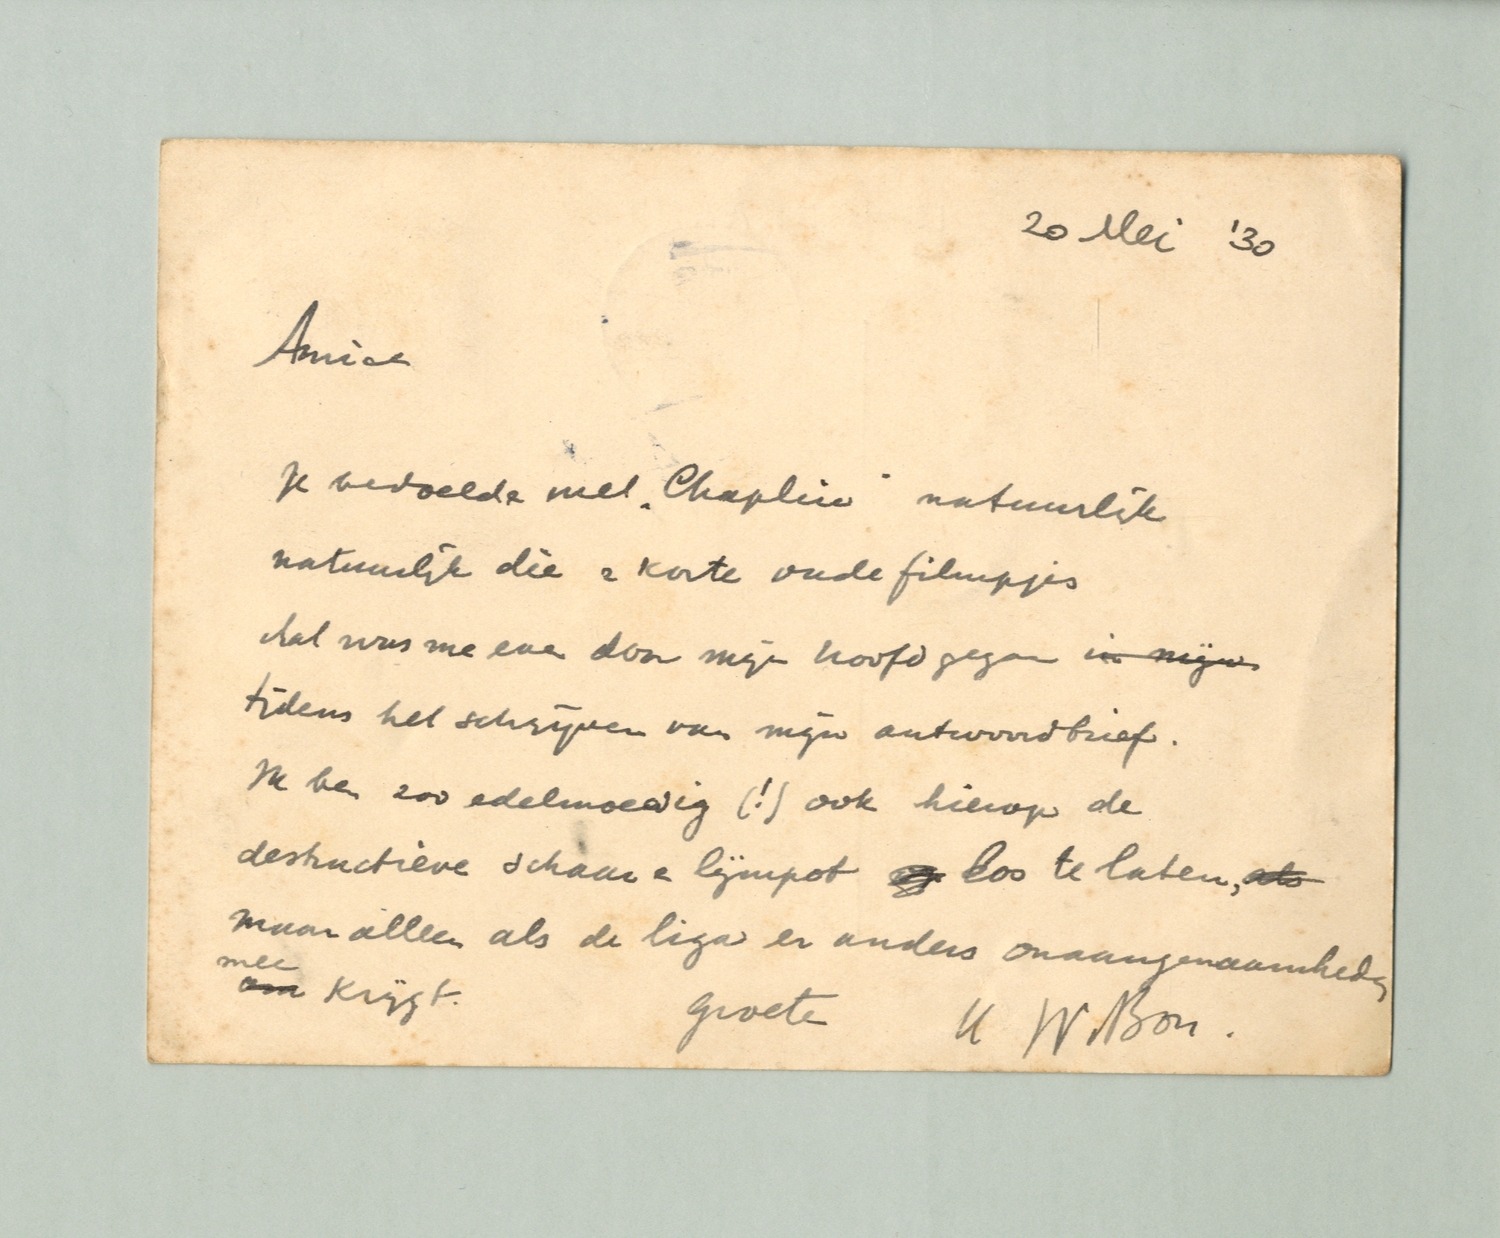 20 Mei '30
Amice
Je bedoelde met „Chaplin" natuurlijk
natuurlijk die 2 korte oude filmpjes
dat was me even door mijn hoofd gegaan in mijn
tijdens het schrijven van mijn antwoordbrief.
Ik ben zoo edelmoedig (!) ook hierop de
destructieve schaar en lijmpot los te laten, als
maar alleen als de liga er anders onaangenaamheden
mee
krijgt.
Groeten W Bon.